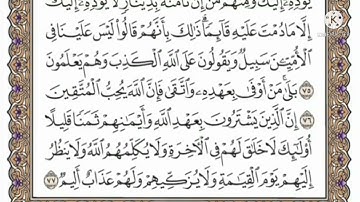 يُؤَدِّهِۦٓ إِلَيۡكَ وَمِنۡهُم مَّنۡ إِن تَأۡمَنۡهُ بِدِينَارٖ لَّا يُؤَدِّهِۦٓ إِلَيۡكَ
إِلَّا مَا دُمۡتَ عَلَيۡهِ قَآئِمٗاۗ ذَٰلِكَ بِأَنَّهُمۡ قَالُواْ لَيۡسَ عَلَيۡنَا فِي
ٱلۡأُمِّيِّـۧنَ سَبِيلٞ وَيَقُولُونَ عَلَى ٱللَّهِ ٱلۡكَذِبَ وَهُمۡ يَعۡلَمُونَ
٧٥ بَلَىٰۚ مَنۡ أَوۡفَىٰ بِعَهۡدِهِۦ وَٱتَّقَىٰ فَإِنَّ ٱللَّهَ يُحِبُّ ٱلۡمُتَّقِينَ
٧٦ إِنَّ ٱلَّذِينَ يَشۡتَرُونَ بِعَهۡدِ ٱللَّهِ وَأَيۡمَٰنِهِمۡ ثَمَنٗا قَلِيلًا
أُوْلَٰٓئِكَ لَا خَلَٰقَ لَهُمۡ فِي ٱلۡأٓخِرَةِ وَلَا يُكَلِّمُهُمُ ٱللَّهُ وَلَا يَنظُرُ
إِلَيۡهِمۡ يَوۡمَ ٱلۡقِيَٰمَةِ وَلَا يُزَكِّيهِمۡ وَلَهُمۡ عَذَابٌ أَلِيمٞ ٧٧